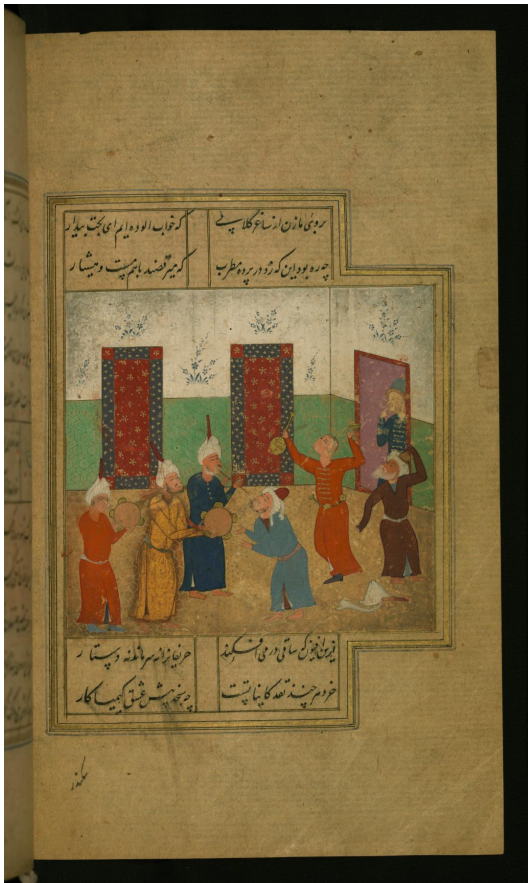 بروی ما زن از ساغر گلابی که خواب الوده ایم ای بخت بیدار
چه ره بود این که زد در پرده مطرب که میرقصند باهم مست و هشیار
ازین افیون که ساقی در می افکند حریفانرا نه سر ماند نه دستار
خرد هر چند نقد کایناتست چه سنجد پیش عشق کیمیاکار
سکندر